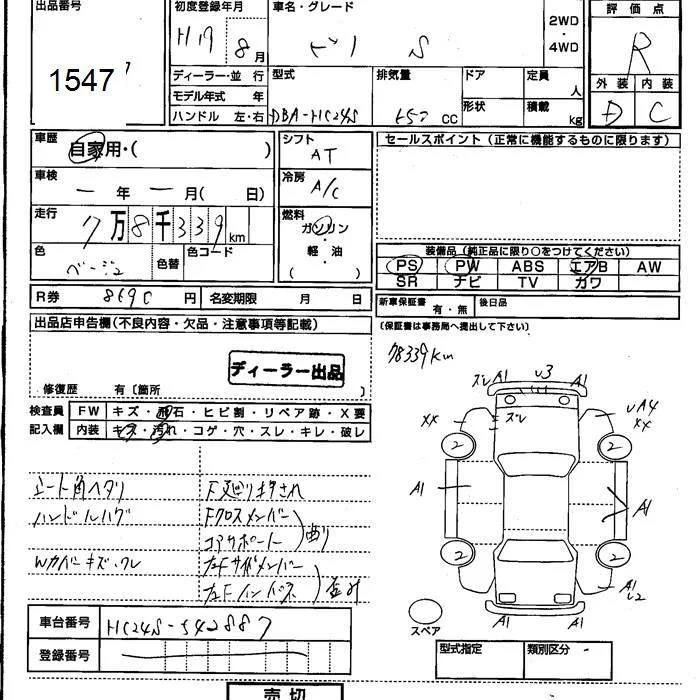 出品番号
1547
初度登録年月
H17 8月
車名・グレード
ピノ S
2WD
・
4WD
評価点
R
外装 内装
D C
ディーラー・並 行
モデル年式 年
ハンドル 左・右
型式
DBA-HC24S
排気量
650 CC
ドア
形状
定員 人
積載 kg
車歴
自家用・( )
車検
ー 年 ー 月( 日)
走行
7万8千339km
色
ベージュ
色替
色コード
シフト
AT
冷房
A/C
燃料
ガソリン
・
軽・油
( )
セールスポイント (正常に機能するものに限ります)
装備品 (純正品に限り○をつけてください)
PS PW ABS エアB AW
SR ナビ TV カワ
R券 8690 円
名変期限 月 日
新車保証書 有・無
後日品
(保証書は事務局へ提出して下さい)
出品店申告欄(不良内容・欠品・注意事項等記載)
ディーラー出品
修復歴 有〔箇所 〕
78339km
検査員
記入欄
FW キズ・飛石・ヒビ割・リペア跡・X要
内装 キズ・汚れ・コゲ・穴・スレ・キレ・破レ
シート角ヘタリ
F廻り押され
ハンドルハゲ
Fクロスメンバー
コアサポート
曲り
Wカバーキズ・ワレ
左Fサイドメンバー
左Fインパネ
歪み
ズレ A1 U3 A1
ズレ
XX
UA4
XX
2 2
A1
A1
2 2
A1
A1 A1
スペア
車台番号 HC24S-542887
登録番号
型式指定 類別区分
売切